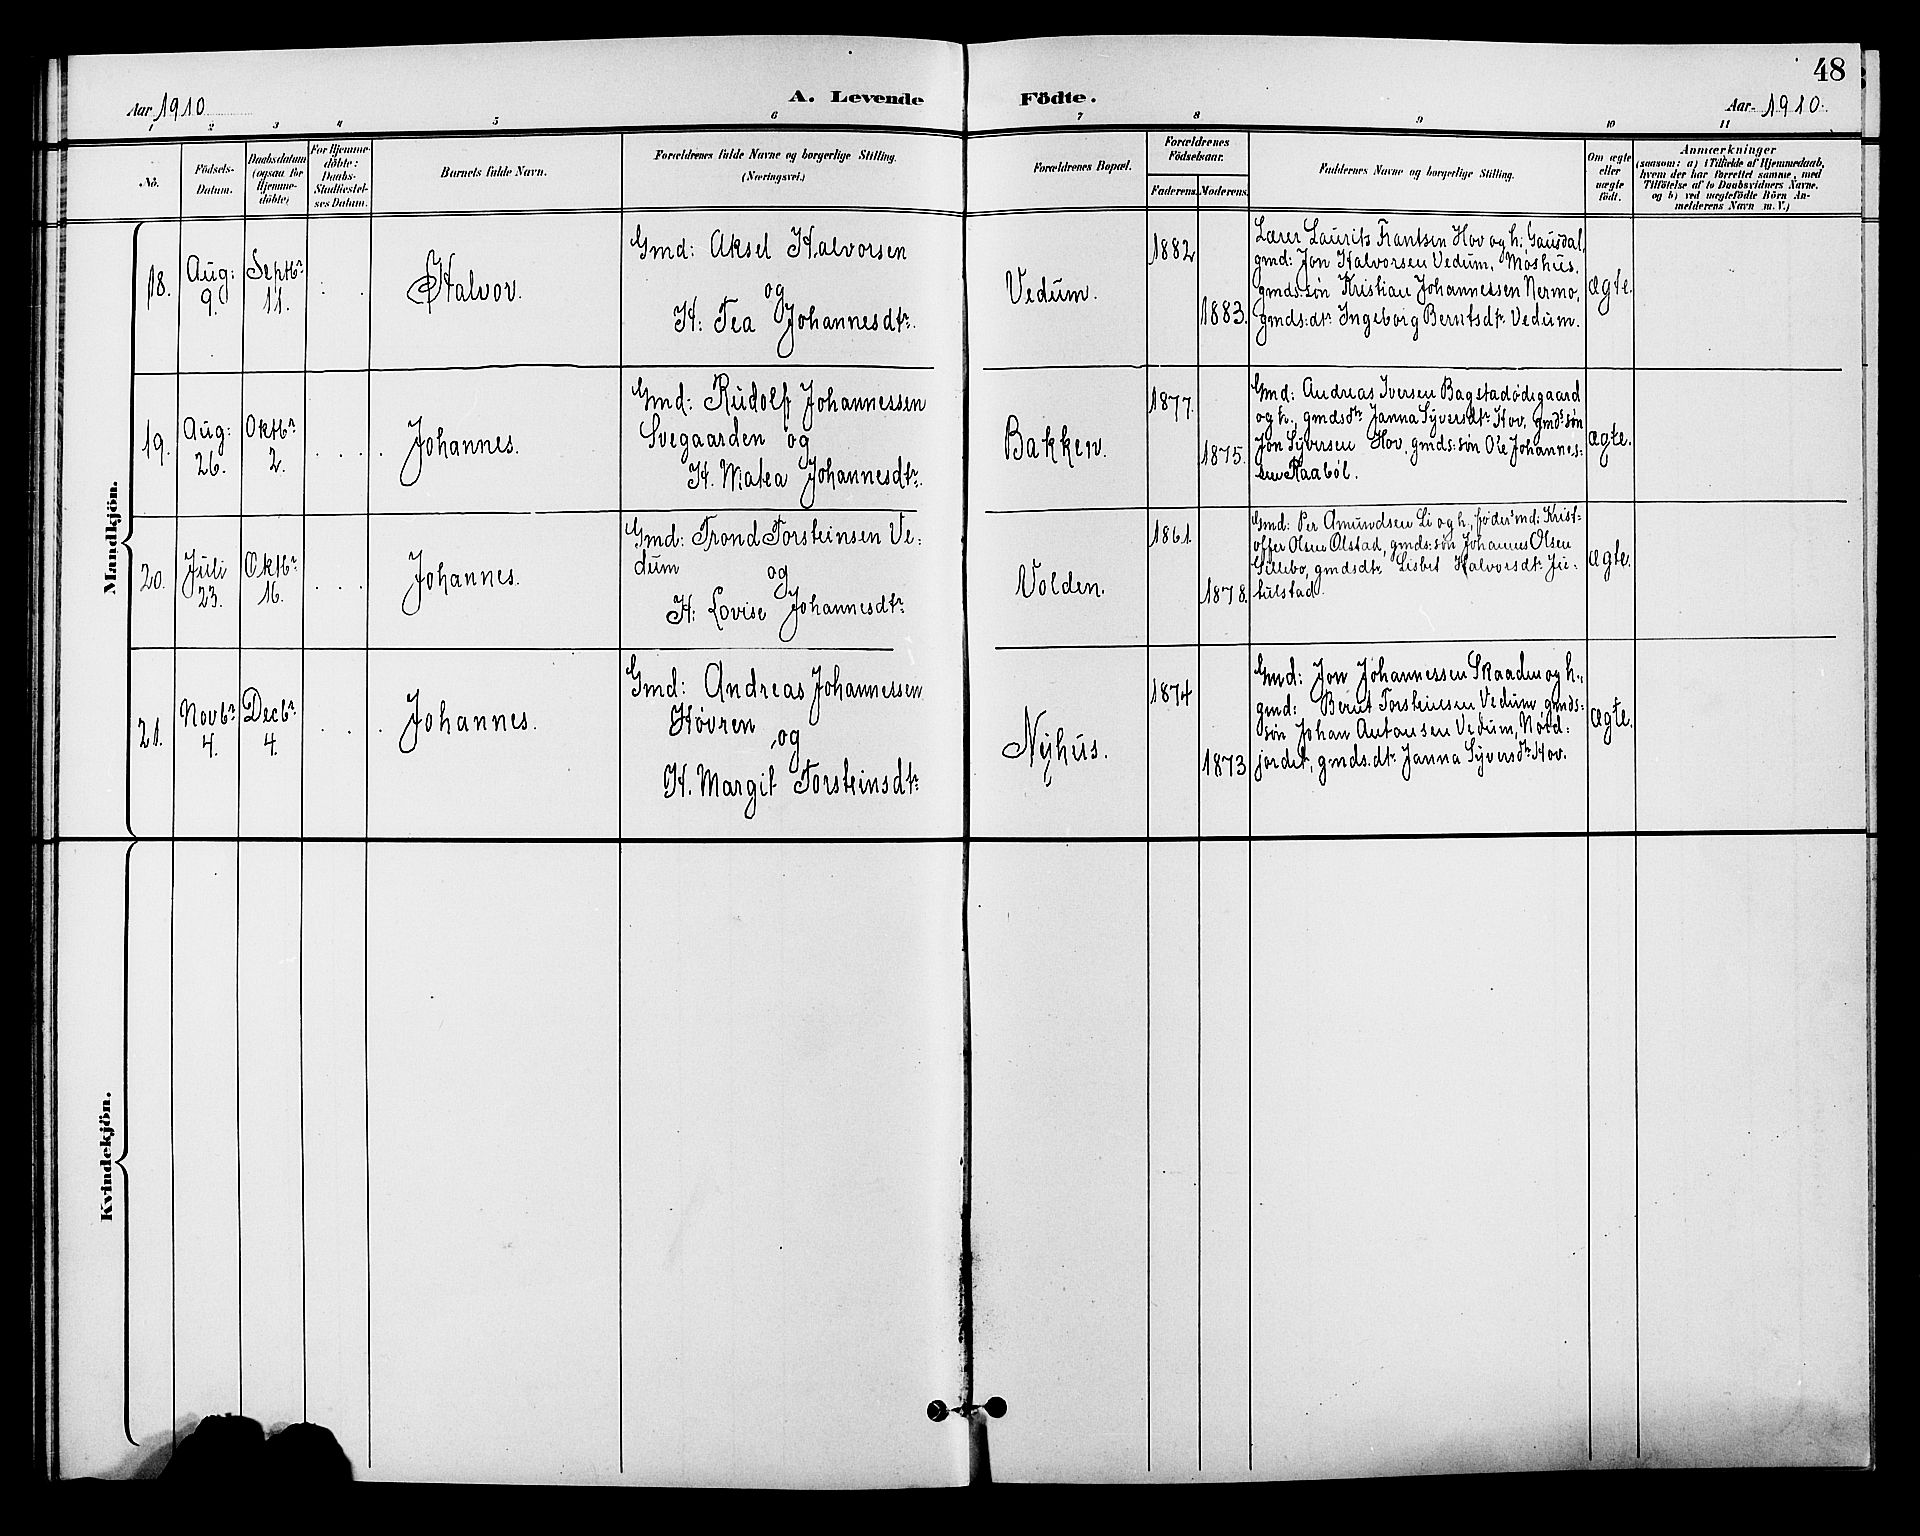 48
Aar 1910
A. Levende
Födte.
Aar 1910.
1 2 3 4 5 6 7 8 9 10 11
No.
Födsels-
Datum.
Daabsdatum
(ogsaa for
Hjemme-
döbte)
For Hjemme-
döbte:
Daabs-
Stadfæstel-
ses Datum.
Barnets fulde Navn.
Forældrenes fulde Navne og borgerlige Stilling.
(Næringsvei.)
Forældrenes Bopæl.
Forældrenes
Födselsaar.
Faderens. Moderens.
Faddernes Navne og borgerlige Stilling.
Om ægte
eller
uægte
födt.
Anmærkninger
(saasom: a) i Tilfælde af Hjemmedaab,
hvem der har forrettet samme, med
Tilföielse af to Daabsvidners Navne.
og b) ved uægtefödte Börn An-
melderens Navn m. V.)
Mandkjön.
18.
Aug:
9.
Septbr
11.
Halvor.
Gmd: Aksel Halvorsen
og
H: Tea Johannesdtr.
Vedum.
1882
1883.
Lærer Laurits Frantsen Hov og h; Gausdal,
gmd: Jon Halvorsen Vedum, Moshus.
gmds:søn Kristian Johannessen Nermo,
gmds:dtr Ingeborg Berntsdtr Vedum.
ægte.
19.
Aug:
26.
Oktbr
2.
Johannes.
Gmd: Rudolf Johannessen
Svegaarden og
H. Matea Johannesdtr.
Bakken.
1877.
1875.
Gmd: Andreas Iversen Bagstadødegaard
og h., gmdsdtr Janna Syversdtr Hov, gmds søn
Jon Syversen Hov, gmds:søn Ole Johannes-
sen Raabøl.
ægte.
20.
Juli
23.
Oktbr
16.
Johannes.
Gmd: Trond Torsteinsen Ve:
dum
og
H: Lovise Johannesdtr
Volden.
1861.
1878.
Gmd: Per Amundsen Li og h., føderdmd: Krist-
offer Olsen Olstad, gmds:søn Johannes Olsen
Sillebo, gmdsdtr Lisbet Halvorsdtr Ju-
tulstad.
ægte.
21.
Novbr
4.
Decbr
4.
Johannes.
Gmd: Andreas Johannessen
Høvren
og
H. Margit Torsteinsdtr
Nyhus.
1874
1873
Gmd: Jon Johannessen Skaaden og h.,
gmd: Bernt Torsteinsen Vedum, gmds-
søn Johan Antonsen Vedum, Nord:
jordet, gmds.dtr Janna Syversdtr Hov.
ægte.
Kvindekjön.